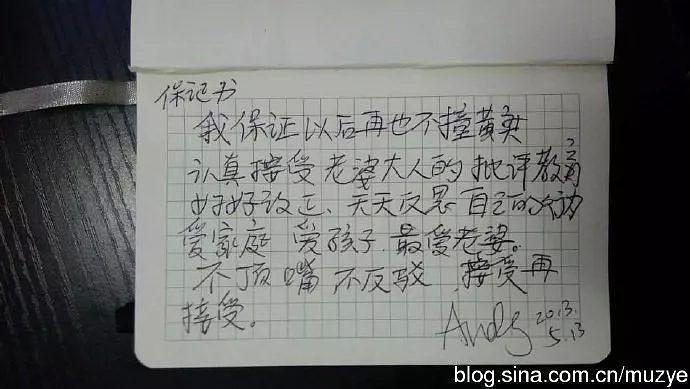 保证书
我保证以后再也不撞黄奕
认真接受老婆大人的批评教育
好好改正、天天反思自己的
爱家庭 爱孩子 最爱老婆。
不顶嘴 不反驳 接受再
接受。
Andy 2013.
5.13
blog.sina.com.cn/muzye